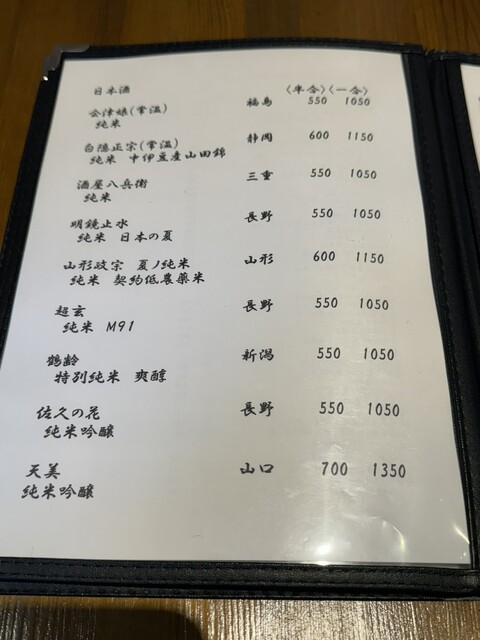 日本酒 〈半合〉〈一合〉
会津娘(常温) 福島 550 1050
純米
白隠正宗(常温) 静岡 600 1150
純米 中伊豆産山田錦
酒屋八兵衛 三重 550 1050
純米
明鏡止水 長野 550 1050
純米 日本の夏
山形政宗 夏ノ純米 山形 600 1150
純米 契約低農薬米
超玄 長野 550 1050
純米 M91
鶴齢 新潟 550 1050
特別純米 爽醇
佐久の花 長野 550 1050
純米吟醸
天美 山口 700 1350
純米吟醸